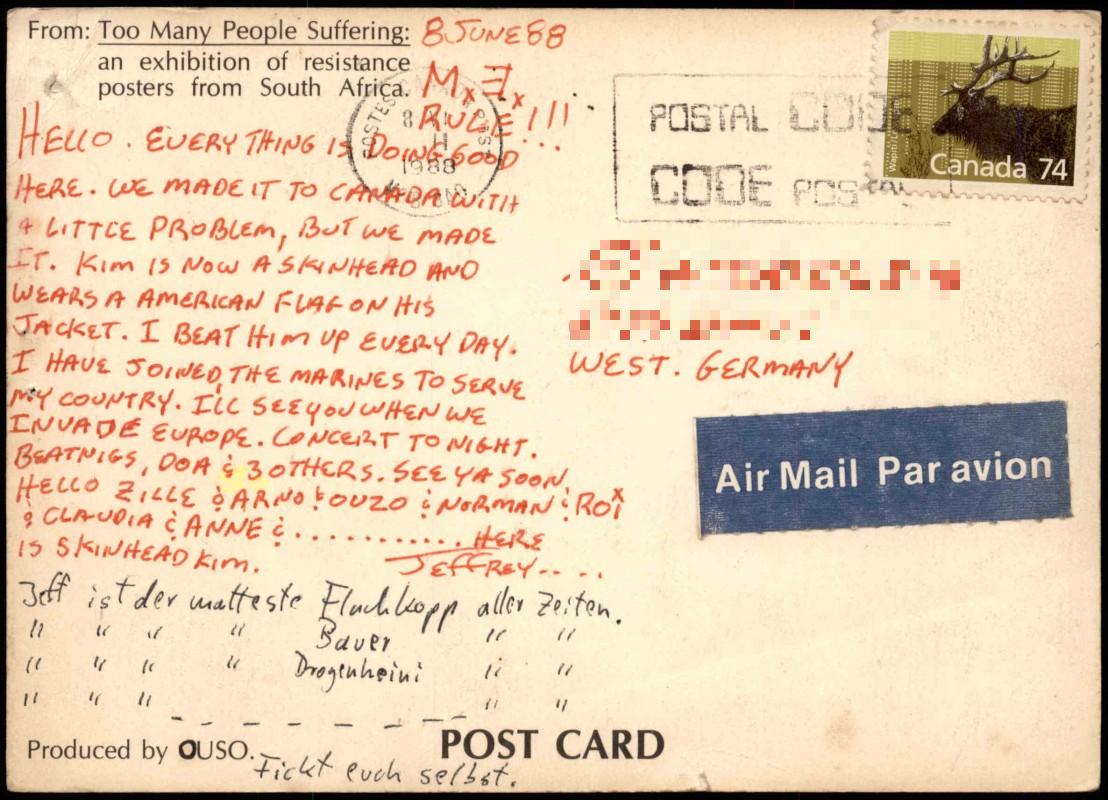 From: Too Many People Suffering:
an exhibition of resistance
posters from South Africa.
8 JUNE 88
RULE!!!
HELLO. EVERYTHING IS DOING GOOD
HERE. WE MADE IT TO CANADA WITH
A LITTLE PROBLEM, BUT WE MADE
IT. KIM IS NOW A SKINHEAD AND
WEARS A AMERICAN FLAG ON HIS
JACKET. I BEAT HIM UP EVERY DAY.
I HAVE JOINED THE MARINES TO SERVE
MY COUNTRY. ILL SEE YOU WHEN WE
INVADE EUROPE. CONCERT TO NIGHT.
BEATNIGS, DOA & 3 OTHERS. SEE YA SOON
HELLO ZILLE & ARNO & OUZO & NORMAN & ROI
& CLAUDIA & ANNE & ........... HERE
IS SKINHEAD KIM. JEFFREY....
Jeff ist der matteste Flachkopp aller Zeiten.
" " " " Bauer " "
" " " " Drogenheini " "
" " " " "
Produced by OUSO.
Fickt euch selbst.
POST CARD
1988
POSTAL CODE
CODE POSTAL
Wapiti
Canada 74
WEST. GERMANY
Air Mail Par avion